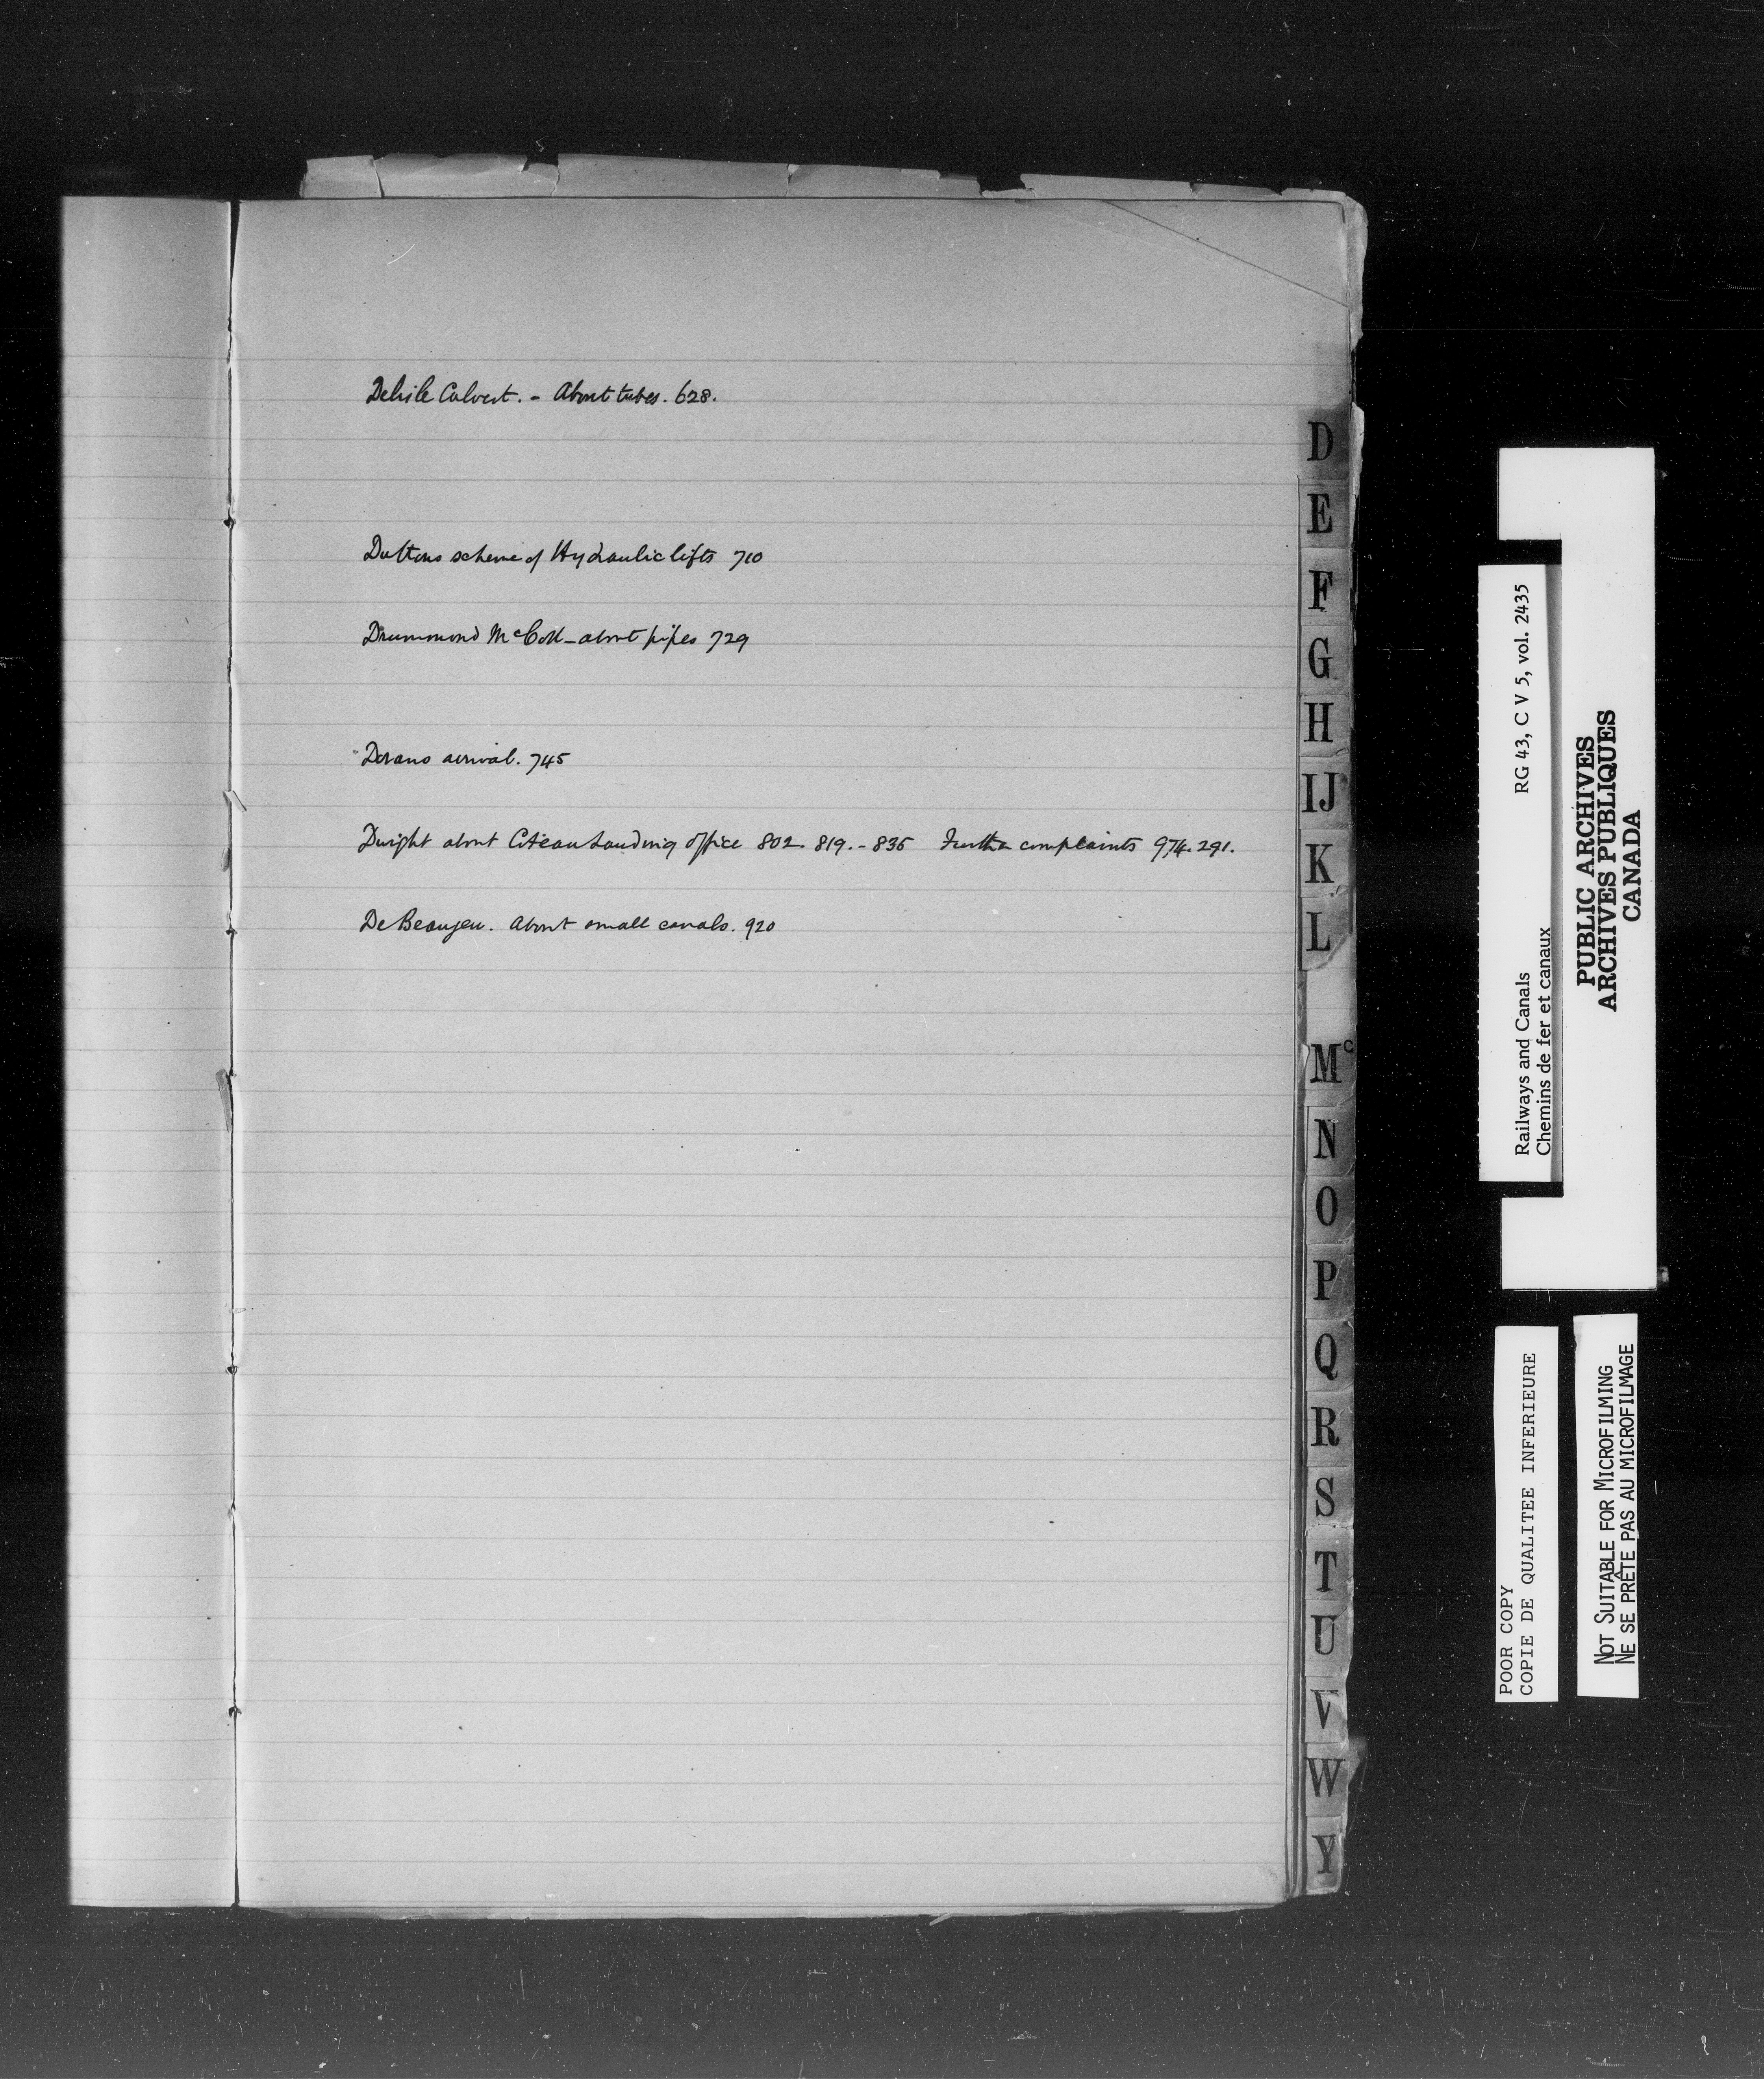 Delisle Culvert. - About tubes. 628.
Duttons scheme of Hydraulic lifts 710
Drummond McCall - about pipes 729
arrival. 745
Dwight about Coteau Landing office 802. 819. - 835 Further complaints 974. 291.
De Beaujeu. About small canals. 920
D
E
F
G
H
IJ
K
L
Mc
N
O
P
Q
R
S
T
U
V
W
Y
Railways and Canals RG 43, C V 5, vol. 2435
Chemins de fer et canaux
PUBLIC ARCHIVES
ARCHIVES PUBLIQUES
CANADA
POOR COPY
COPIE DE QUALITEE INFERIEURE
NOT SUITABLE FOR MICROFILMING
NE SE PRÊTE PAS AU MICROFILMAGE